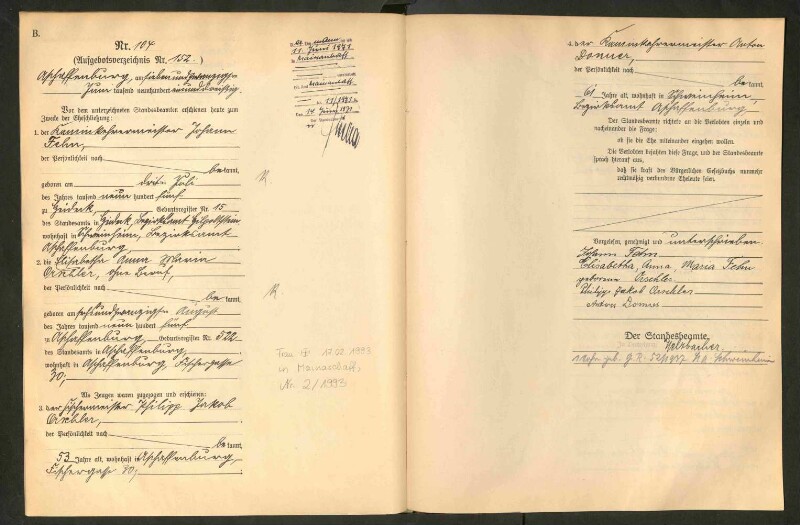 B.
Nr. 104
(Aufgebotsverzeichnis Nr. 152.)
Aschaffenburg, am siebenundzwanzigsten
Juni tausend neunhundert
Vor dem unterzeichneten Standesbeamten erschienen heute zum
Zwecke der Eheschließung:
1. der Kaminkehrermeister Johann
Fehn,
der Persönlichkeit nach
bekannt,
geboren am dritten Juli
des Jahres tausend neun hundert fünf
zu Heideck, Geburtsregister Nr. 15
des Standesamts in Heideck, Bezirksamt Hilpoltstein
wohnhaft in Schweinheim, Bezirksamt
Aschaffenburg
2. die Elisabetha Anna Maria
ohne Beruf,
der Persönlichkeit nach
bekannt,
geboren am sechsundzwanzigsten August
des Jahres tausend neun hundert fünf
zu Aschaffenburg, Geburtsregister Nr. 572
des Standesamts in Aschaffenburg,
wohnhaft in Aschaffenburg, Fischergasse
30;
Als Zeugen waren zugezogen und erschienen:
3. der Fischermeister Philipp Jakob
der Persönlichkeit nach
bekannt,
53 Jahre alt, wohnhaft in Aschaffenburg,
Fischergasse 30;
11. Juni 1971
in Mainaschaff
Mainaschaff
Juni 1971
Trau
in Mainaschaff,
Nr. 2/1993
4. der Kaminkehrermeister Anton
Donner,
der Persönlichkeit nach
bekannt,
61 Jahre alt, wohnhaft in Schweinheim,
Bezirksamt Aschaffenburg
Der Standesbeamte richtete an die Verlobten einzeln und
nacheinander die Frage:
ob sie die Ehe miteinander eingehen wollen.
Die Verlobten bejahten diese Frage, und der Standesbeamte
sprach hierauf aus,
daß sie kraft des Bürgerlichen Gesetzbuchs nunmehr
rechtmäßig verbundene Eheleute seien.
Vorgelesen, genehmigt und unterschrieben
Johann Fehn
Elisabetha, Anna, Maria Fehn
geborene
Philipp Jakob
Anton Donner
Der Standesbeamte.
Holzbacher.